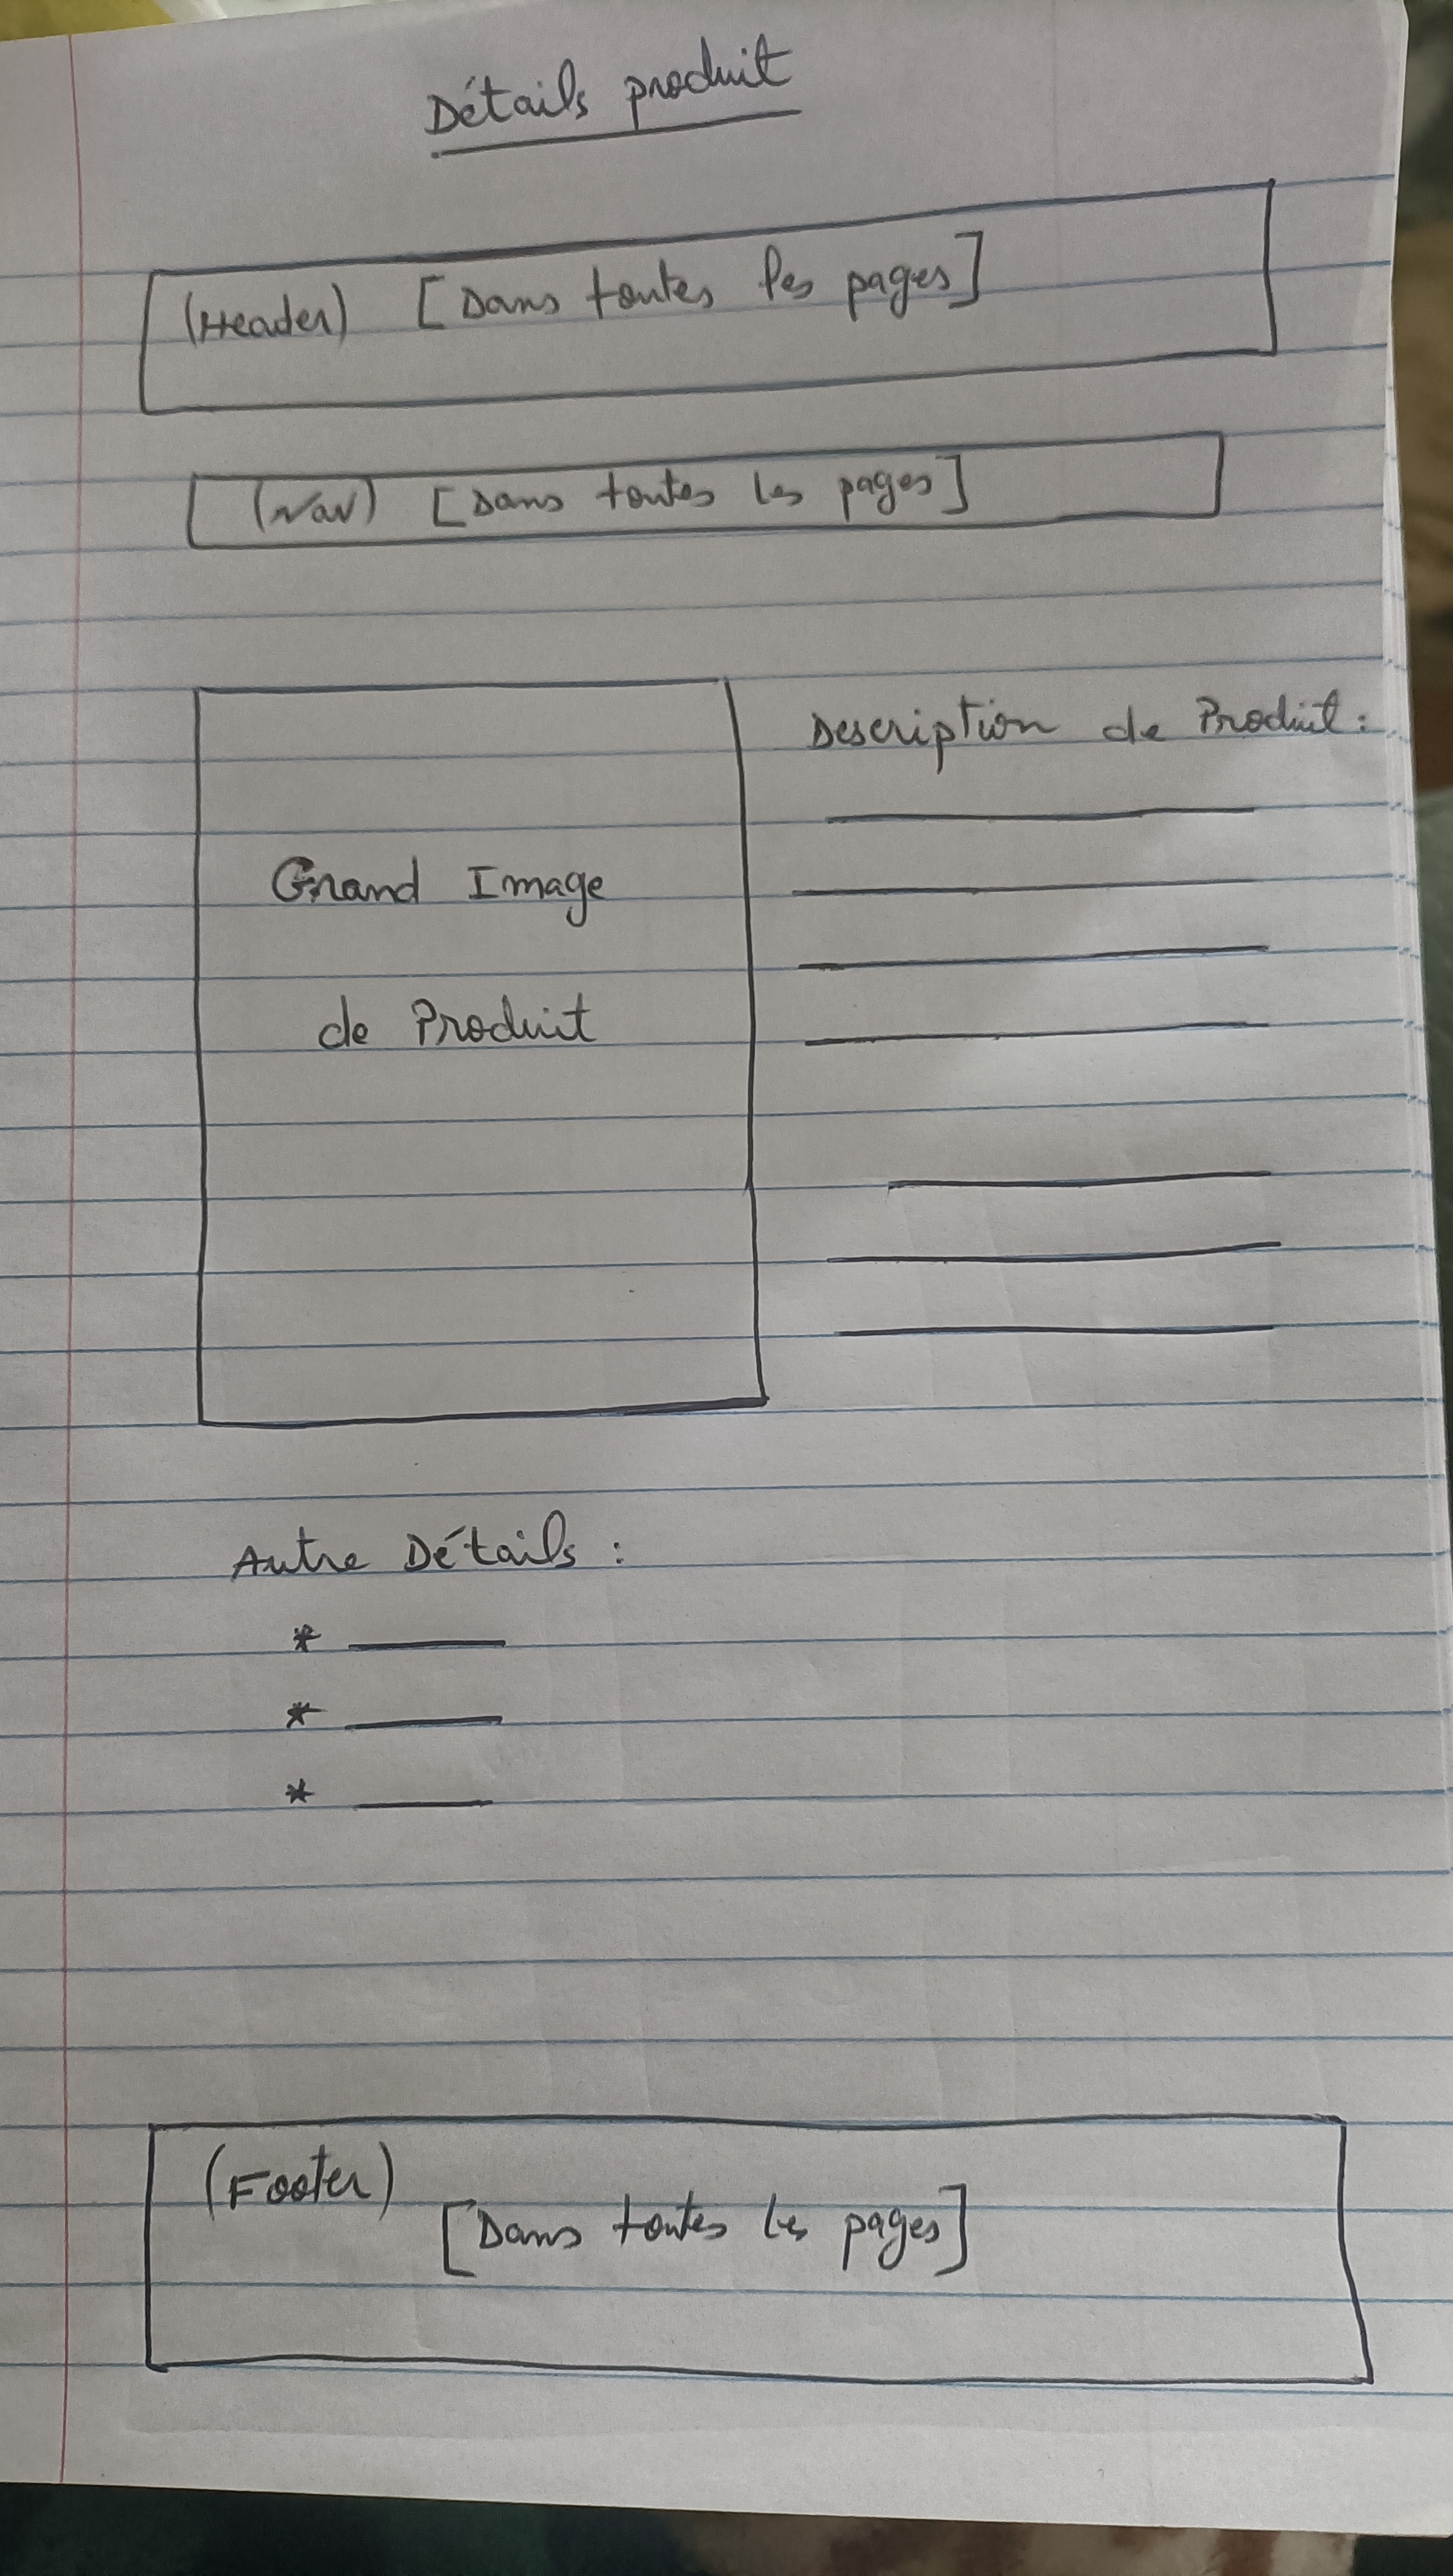 Détails produit
(Header) [Dans toutes les pages]
(Nav) [Dans toutes les pages]
Description de Produit :
Grand Image
de Produit
Autre Détails :
*
*
*
(Footer)
[Dans toutes les pages]